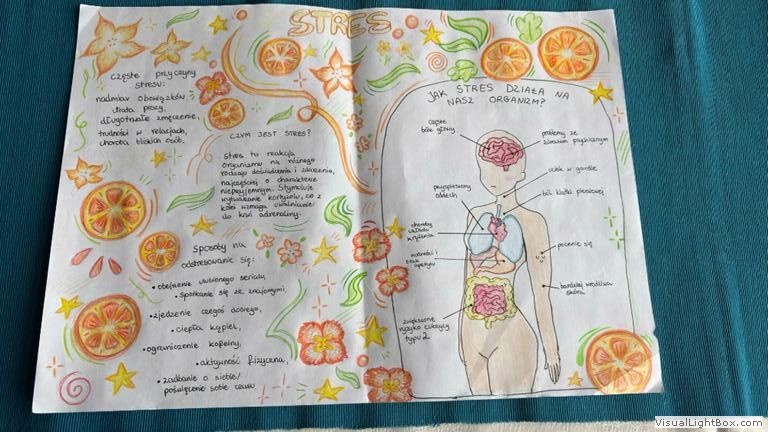 STRES
CZĘSTE PRZYCZYNY
STRESU:
nadmiar obowiązków,
utrata pracy,
długotrwałe zmęczenie,
trudności w relacjach,
choroba bliskich osób,
CZYM JEST STRES?
Stres to reakcja
organizmu na różnego
rodzaju doświadczenia i zdarzenia,
najczęściej o charakterze
nieprzyjemnym. Stymuluje
wytwarzanie kortyzolu, co z
kolei wzmaga uwalnianie
do krwi adrenaliny.
SPOSOBY NA
odstresowanie się:
• obejrzenie ulubionego serialu,
• spotkanie się ze znajomymi,
• zjedzenie czegoś dobrego,
• ciepła kąpiel,
• ograniczenie kofeiny,
• aktywność fizyczna,
• zadbanie o siebie/
poświęcenie sobie czasu.
JAK STRES DZIAŁA NA
NASZ ORGANIZM?
częste
bóle głowy
problemy ze
zdrowiem psychicznym
ucisk w gardle
przyspieszony
oddech
ból klatki piersiowej
choroby
układu
krążenia
nudności i
brak
apetytu
pocenie się
bardziej wrażliwa
skóra
zwiększone
ryzyko cukrzycy
typu 2
VisualLightBox.com